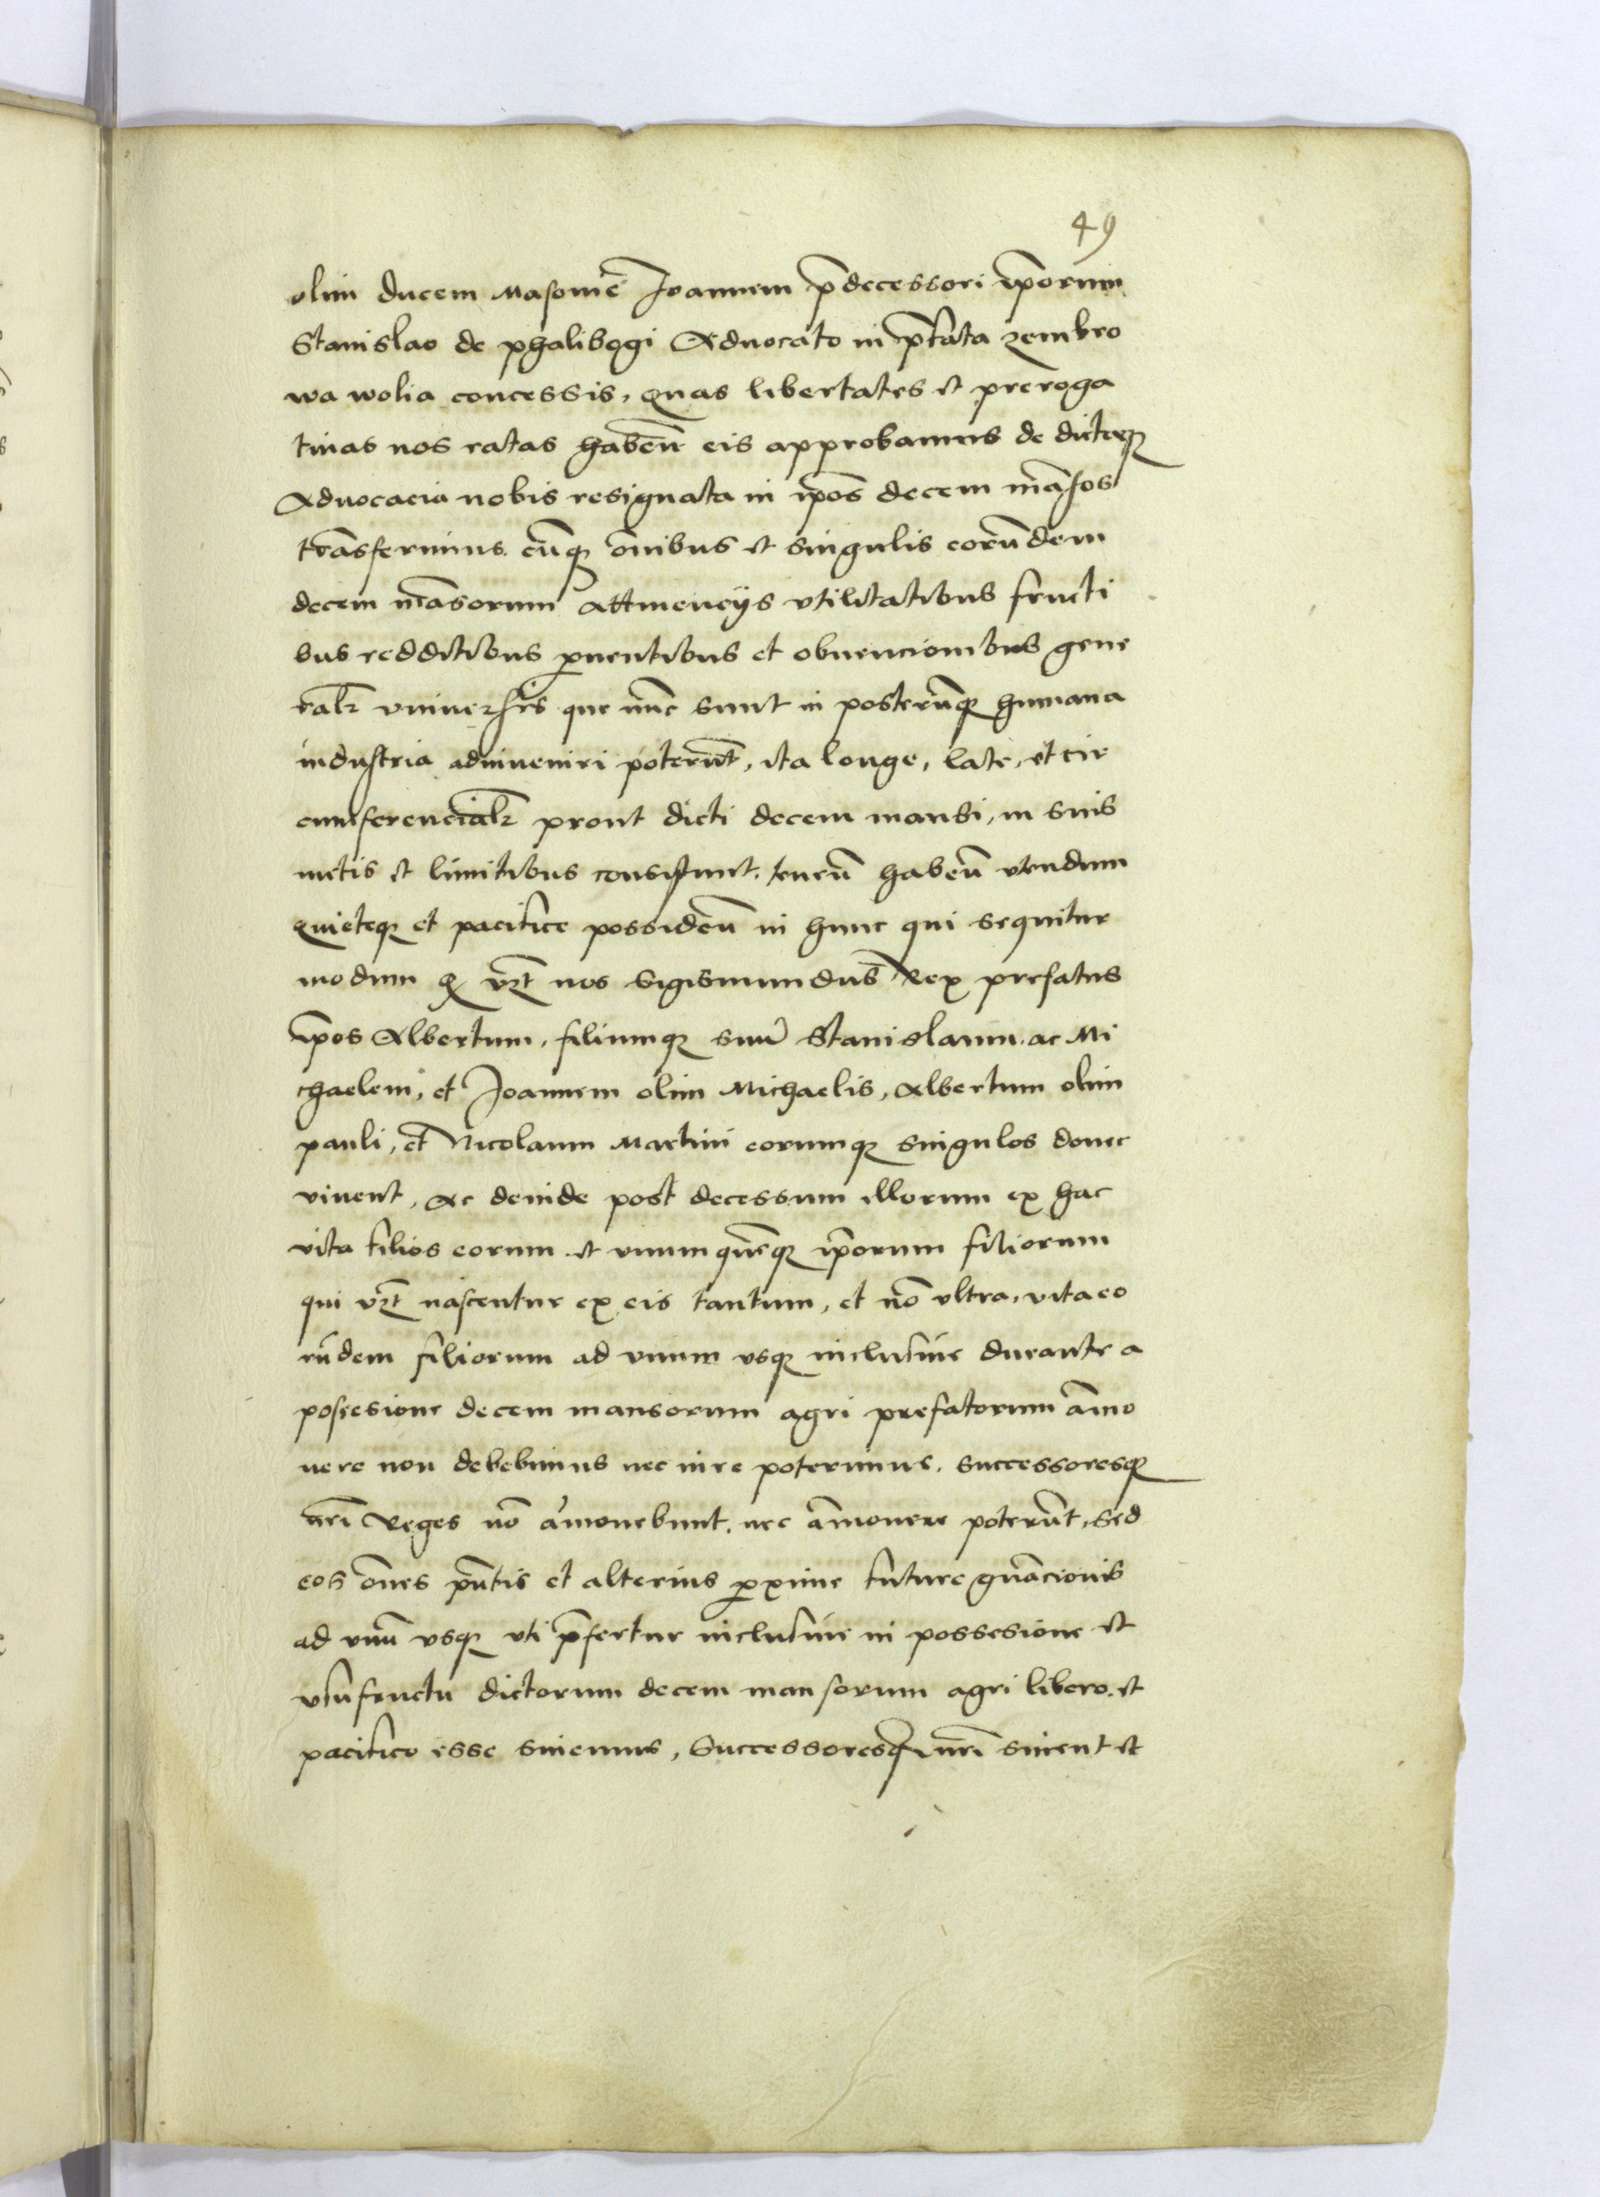 49
olim ducem Masouie Ioannem p̄decessori ip̄orum
Stanislao de phalibogi Aduocato in p̄fata zembro
wa wolia concessis, quas libertates et preroga
tiuas nos ratas haben̄ eis approbamus de dictaqꝫ
Aduocacia nobis resignata in ip̄os decem māsos
trāsferimus cūqꝫ om̄ibus et singulis eorūdem
decem māsorum attinencijs vtilitatibus fructi
bus redditibus ꝓuentibus et obuencionibus gene
ralr vniuersis que nūc sunt in posterūqꝫ humana
industria adinueniri poterūt, ita longe, late, et cir
cumferencialr prout dicti decem mansi, in suis
metis et limitibus consistunt. tenen̄ haben̄ vtendum
quieteqꝫ et pacifice possiden̄ in hunc qui sequitur
modum q vz̄t nos Sigismundus Rex prefatus
ip̄os Albertum, filiumqꝫ suū Stanislaum ac Mi
chaelem, et Ioannem olim Michaelis, Albertum olim
pauli, et Nicolaum Martini eorumqꝫ singulos donec
viuent, Ac deinde post decessum illorum ex hac
vita filios eorum et vnumquēqꝫ ip̄orum filiorum
qui vz̄t nascentur ex eis tantum, et nō vltra, vita eo
rūdem filiorum ad vnum vsqꝫ inclusiue durante a
possesione decem mansorum agri prefatorum āmo
uere non debebimus nec iure poterimus. Successoresqꝫ
nr̄i Reges nō amouebunt, nec āmouere poterūt, Sed
eos om̄es p̄ntis et alterius ꝓxime future gn̄acionis
ad vnū vsqꝫ vti p̄fertur inclusiue in possesione et
vsufructu dictorum decem mansorum agri libero et
pacifico esse sinemus, Successoresqꝫ nr̄i sinent et